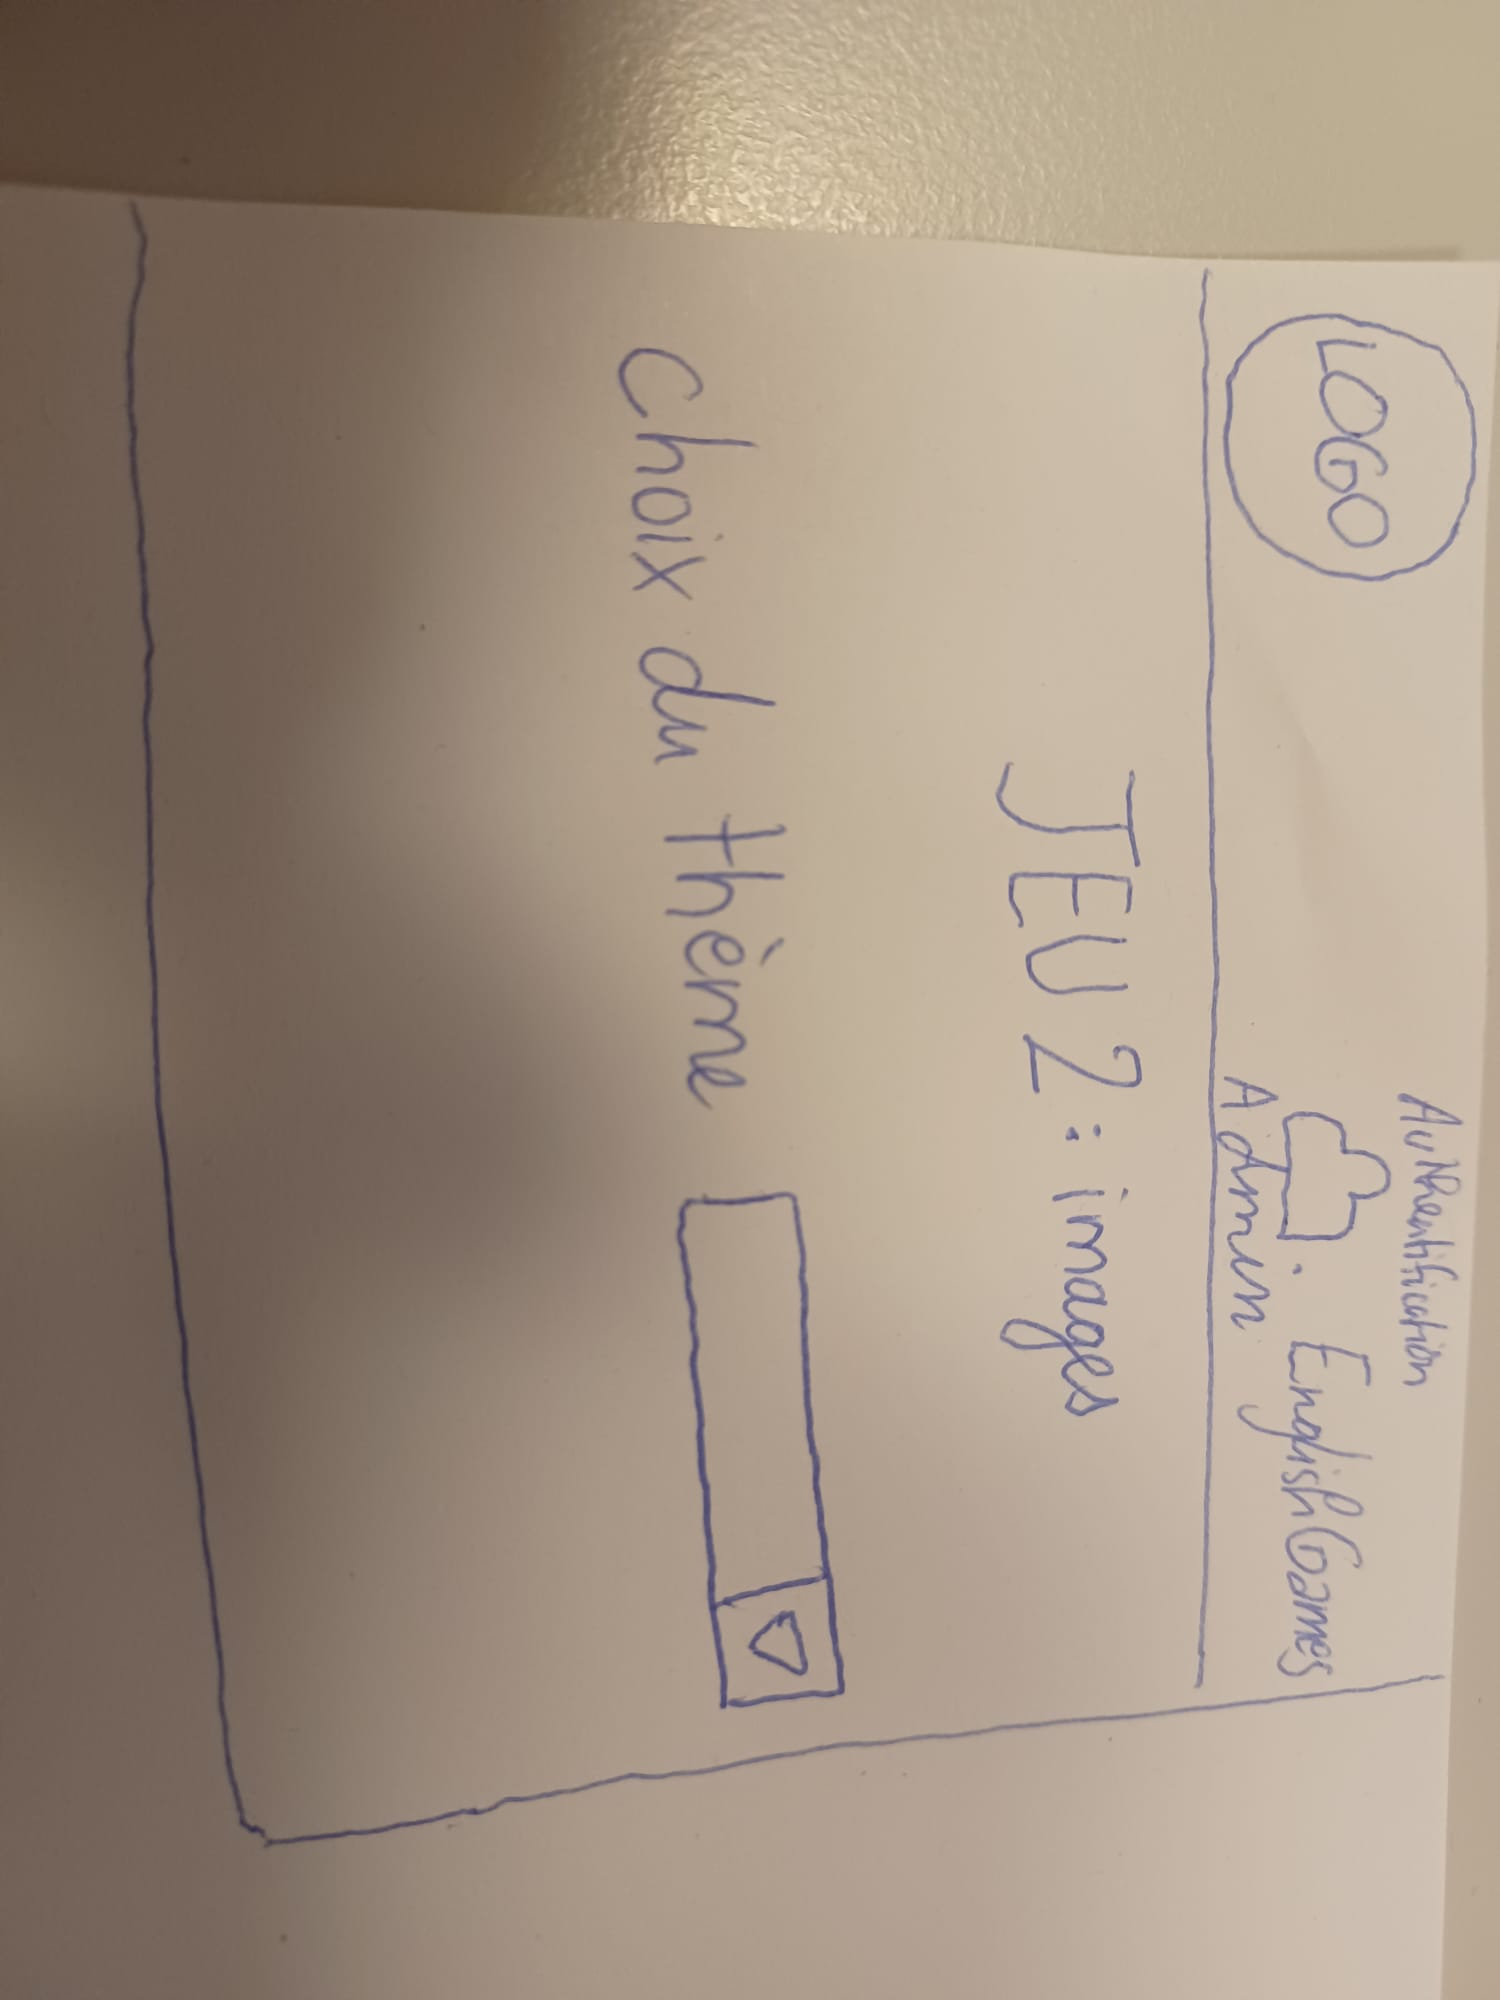 LOGO
Authentification
EnglishGames
Admin
JEU 2 : images
Choix du thème